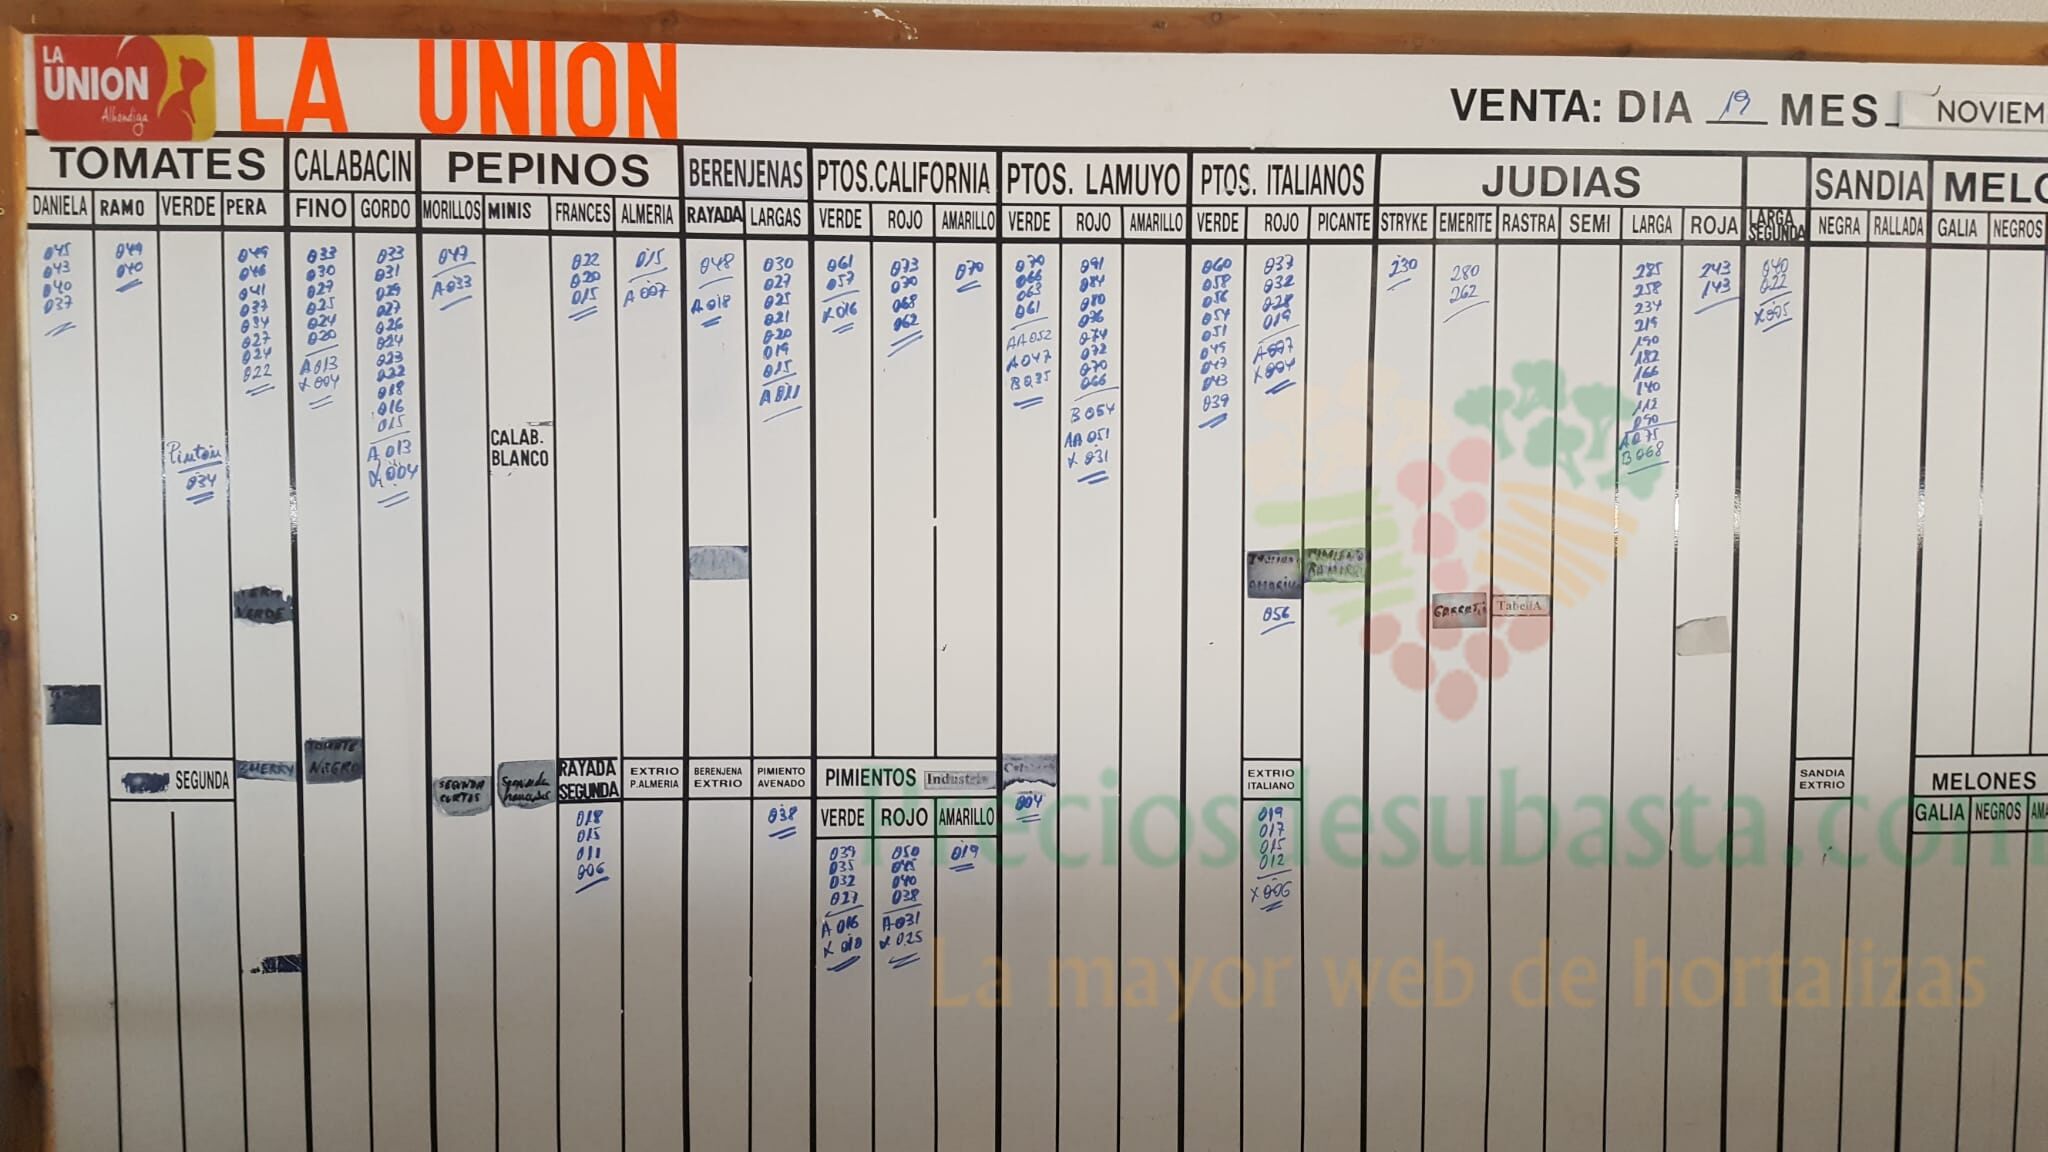 LA UNION
Alhóndiga
LA UNION
VENTA: DIA 19 MES NOVIEM
TOMATES CALABACIN PEPINOS BERENJENAS PTOS.CALIFORNIA PTOS. LAMUYO PTOS. ITALIANOS JUDIAS SANDIA MELO
DANIELA RAMO VERDE PERA FINO GORDO MORILLOS MINIS FRANCES ALMERIA RAYADA LARGAS VERDE ROJO AMARILLO VERDE ROJO AMARILLO VERDE ROJO PICANTE STRYKE EMERITE RASTRA SEMI LARGA ROJA LARGA SEGUNDA NEGRA RALLADA GALIA NEGROS
045
043
040
037
049
040
Pinton
034
049
046
041
037
034
027
024
022
033
030
027
025
024
020
A 013
X 004
033
031
029
027
026
024
023
022
018
016
015
A 013
X 004
047
A 033
CALAB.
BLANCO
022
020
015
015
A 007
048
A 018
030
027
025
021
020
019
015
A 011
061
057
X 016
073
070
068
062
070
070
066
063
061
AA 052
A 047
B 035
091
084
080
076
074
072
070
066
B 054
AA 051
X 031
060
058
056
054
051
049
047
043
039
037
032
028
019
A 007
X 004
AMARILLO
056
PIMIENTO
230
280
262
TabellA
285
258
234
219
190
182
166
140
112
090
A 075
B 068
243
143
040
022
X 005
VERDE
SEGUNDA
CHERRY
TOMATE
NEGRO
SEGUNDA
CORTOS
Segunda
RAYADA
SEGUNDA
018
015
011
006
EXTRIO
P.ALMERIA
BERENJENA
EXTRIO
PIMIENTO
AVENADO
038
PIMIENTOS Industria
VERDE ROJO AMARILLO
039
035
032
027
A 016
X 010
050
045
040
038
A 031
X 025
019
004
EXTRIO
ITALIANO
019
017
015
012
X 006
SANDIA
EXTRIO
MELONES
GALIA NEGROS AMA
Preciosdesubasta.com
La mayor web de hortalizas